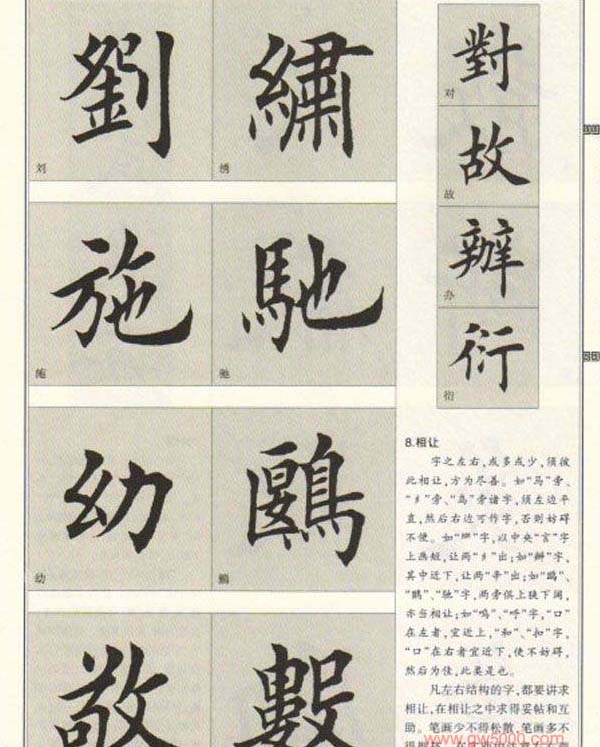 劉
刘
繡
绣
施
施
馳
驰
幼
幼
鷗
鸥
敬
數
對
对
故
故
辦
办
衍
衍
8.相让
字之左右,或多或少,须彼
此相让,方为尽善。如“马”旁、
“纟”旁、“鸟”旁诸字,须左边平
直,然后右边可作字,否则妨碍
不便。如“䜌”字,以中央“言”字
上画短,让两“纟”出;如“辦”字,
其中近下,让两“辛”出;如“鸥”、
“鹠”、“驰”字,两旁俱上狭下阔,
亦当相让;如“呜”、“呼”字,“口”
在左者,宜近上,“和”、“扣”字,
“口”在右者宜近下,使不妨碍,
然后为佳,此类是也。
凡左右结构的字,都要讲求
相让,在相让之中求得妥帖和互
助。笔画少不得松散,笔画多不
www.gw5000.com